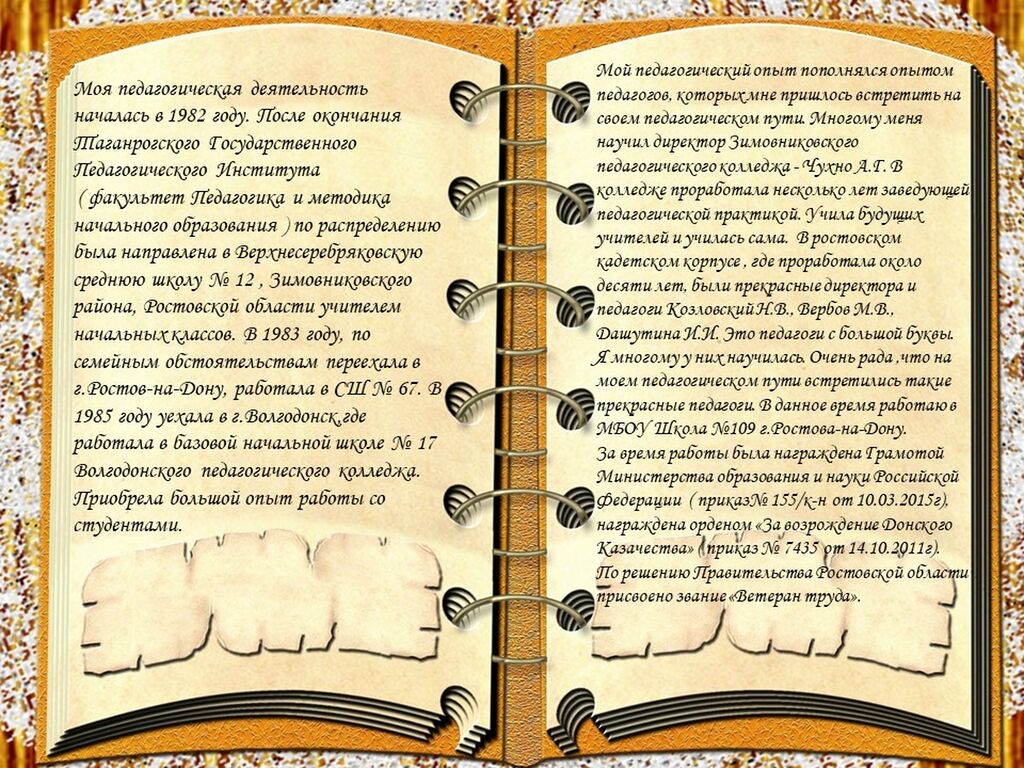 Моя педагогическая деятельность
началась в 1982 году. После окончания
Таганрогского Государственного
Педагогического Института
( факультет Педагогика и методика
начального образования ) по распределению
была направлена в Верхнесеребряковскую
среднюю школу № 12 , Зимовниковского
района, Ростовской области учителем
начальных классов. В 1983 году, по
семейным обстоятельствам переехала в
г.Ростов-на-Дону, работала в СШ № 67. В
1985 году уехала в г.Волгодонск,где
работала в базовой начальной школе № 17
Волгодонского педагогического колледжа.
Приобрела большой опыт работы со
студентами.
Мой педагогический опыт пополнялся опытом
педагогов, которых мне пришлось встретить на
своем педагогическом пути. Многому меня
научил директор Зимовниковского
педагогического колледжа - Чухно А.Г. В
колледже проработала несколько лет заведующей
педагогической практикой. Учила будущих
учителей и училась сама. В ростовском
кадетском корпусе , где проработала около
десяти лет, были прекрасные директора и
педагоги Козловский Н.В., Вербов М.В.,
Дашутина И.И. Это педагоги с большой буквы.
Я многому у них научилась. Очень рада ,что на
моем педагогическом пути встретились такие
прекрасные педагоги. В данное время работаю в
МБОУ Школа №109 г.Ростова-на-Дону.
За время работы была награждена Грамотой
Министерства образования и науки Российской
Федерации ( приказ№ 155/к-н от 10.03.2015г),
награждена орденом «За возрождение Донского
Казачества» ( приказ № 7435 от 14.10.2011г).
По решению Правительства Ростовской области
присвоено звание «Ветеран труда».